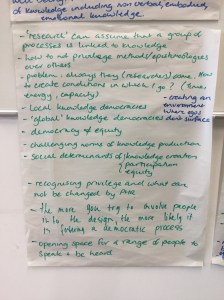 of knowledge including non verbal, embodied,
emotional knowledge
- 'research' can assume that a group of
processes is linked to knowledge
- how to not privilege methods/epistemologies
over others
- problem: always they (researchers) came. How
to create conditions in which I go? (time,
energy, capacity)
- creating an
environment
where egos
don't surface
- local knowledge democracies
- 'global' knowledge democracies
- democracy & equity
- challenging norms of knowledge production
- social determinants of knowledge creation
participation
equity
- recognising privilege and what can
not be changed by
- The more you try to involve people
in the design, the more likely it
is following a democratic process
- opening space for a range of people to
speak & be heard